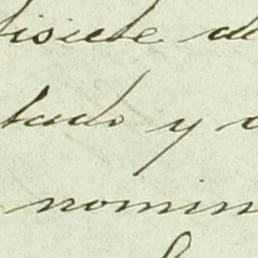 tisiete de
tado y a
nomin